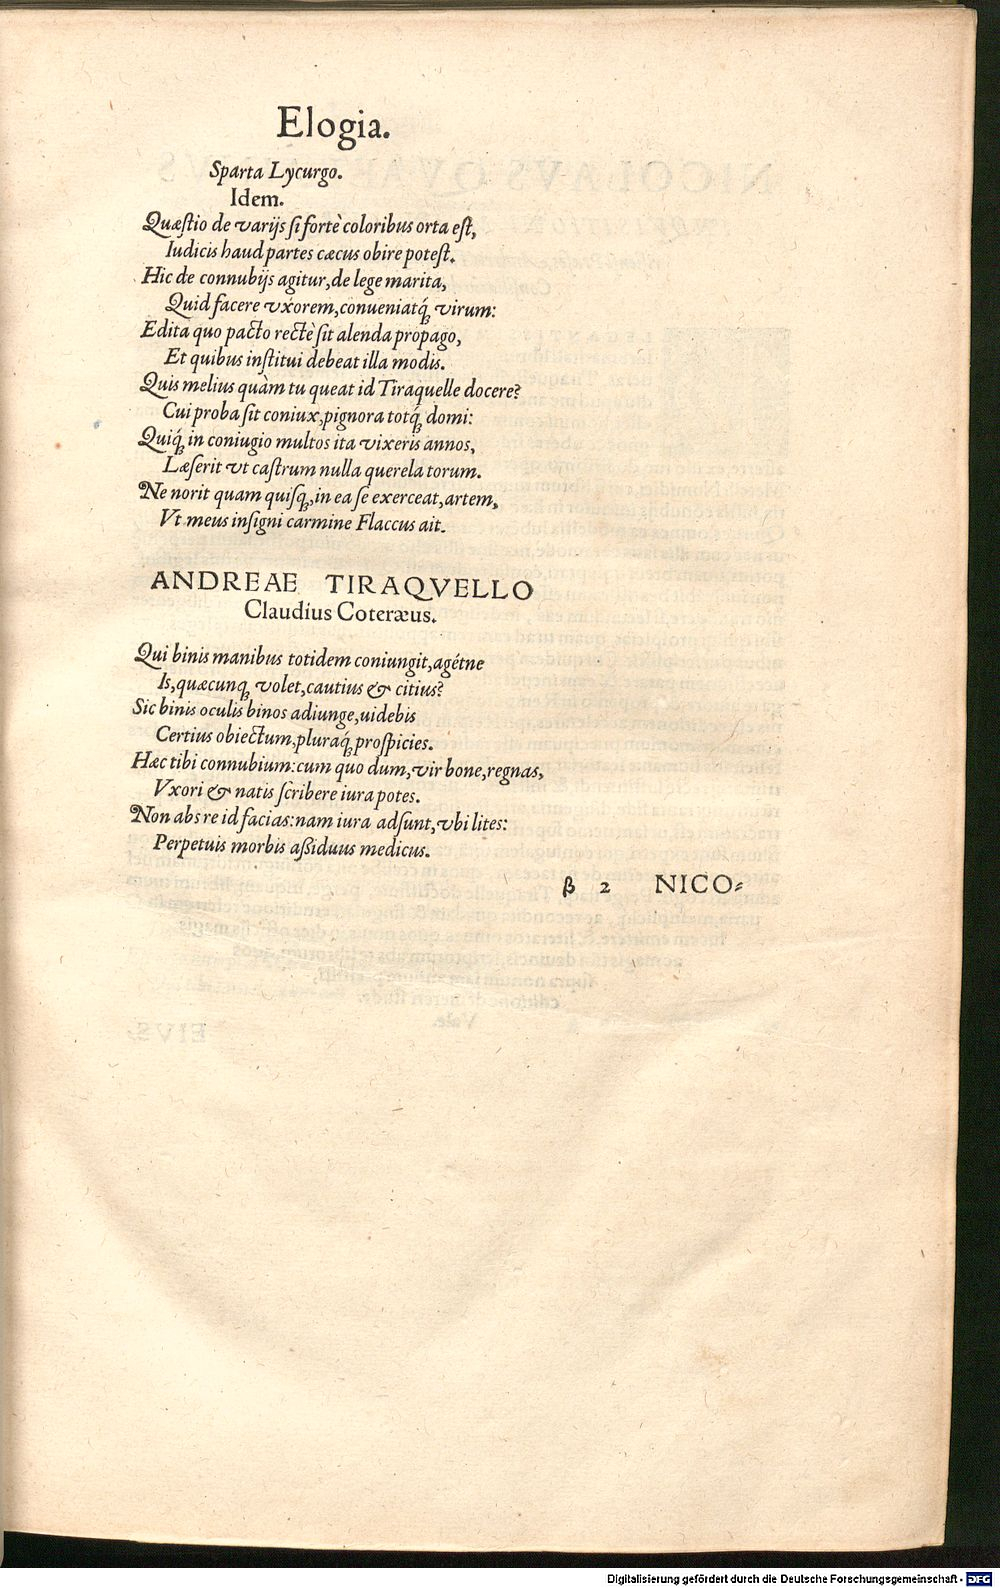 Elogia.
Sparta Lycurgo.
Idem.
Quæſtio de varijs ſi fortè coloribus orta eſt,
Iudicis haud partes cæcus obire poteſt.
Hic de connubijs agitur, de lege marita,
Quid facere vxorem, conueniatq́; virum:
Edita quo pacto rectè ſit alenda propago,
Et quibus inſtitui debeat illa modis.
Quis melius quàm tu queat id Tiraquelle docere?
Cui proba ſit coniux, pignora totq́; domi:
Quiq́; in coniugio multos ita vixeris annos,
Læſerit vt caſtrum nulla querela torum.
Ne norit quam quiſq;, in ea ſe exerceat, artem,
Vt meus inſigni carmine Flaccus ait.
ANDREAE TIRAQVELLO
Claudius Coteræus.
Qui binis manibus totidem coniungit, agétne
Is, quæcunq; volet, cautius & citius?
Sic binis oculis binos adiunge, uidebis
Certius obiectum, pluraq́; proſpicies.
Hæc tibi connubium: cum quo dum, vir bone, regnas,
Vxori & natis ſcribere iura potes.
Non abs re id facias: nam iura adſunt, vbi lites:
Perpetuis morbis aßiduus medicus.
β 2 NICO⸗
Digitalisierung gefördert durch die Deutsche Forschungsgemeinschaft - DFG